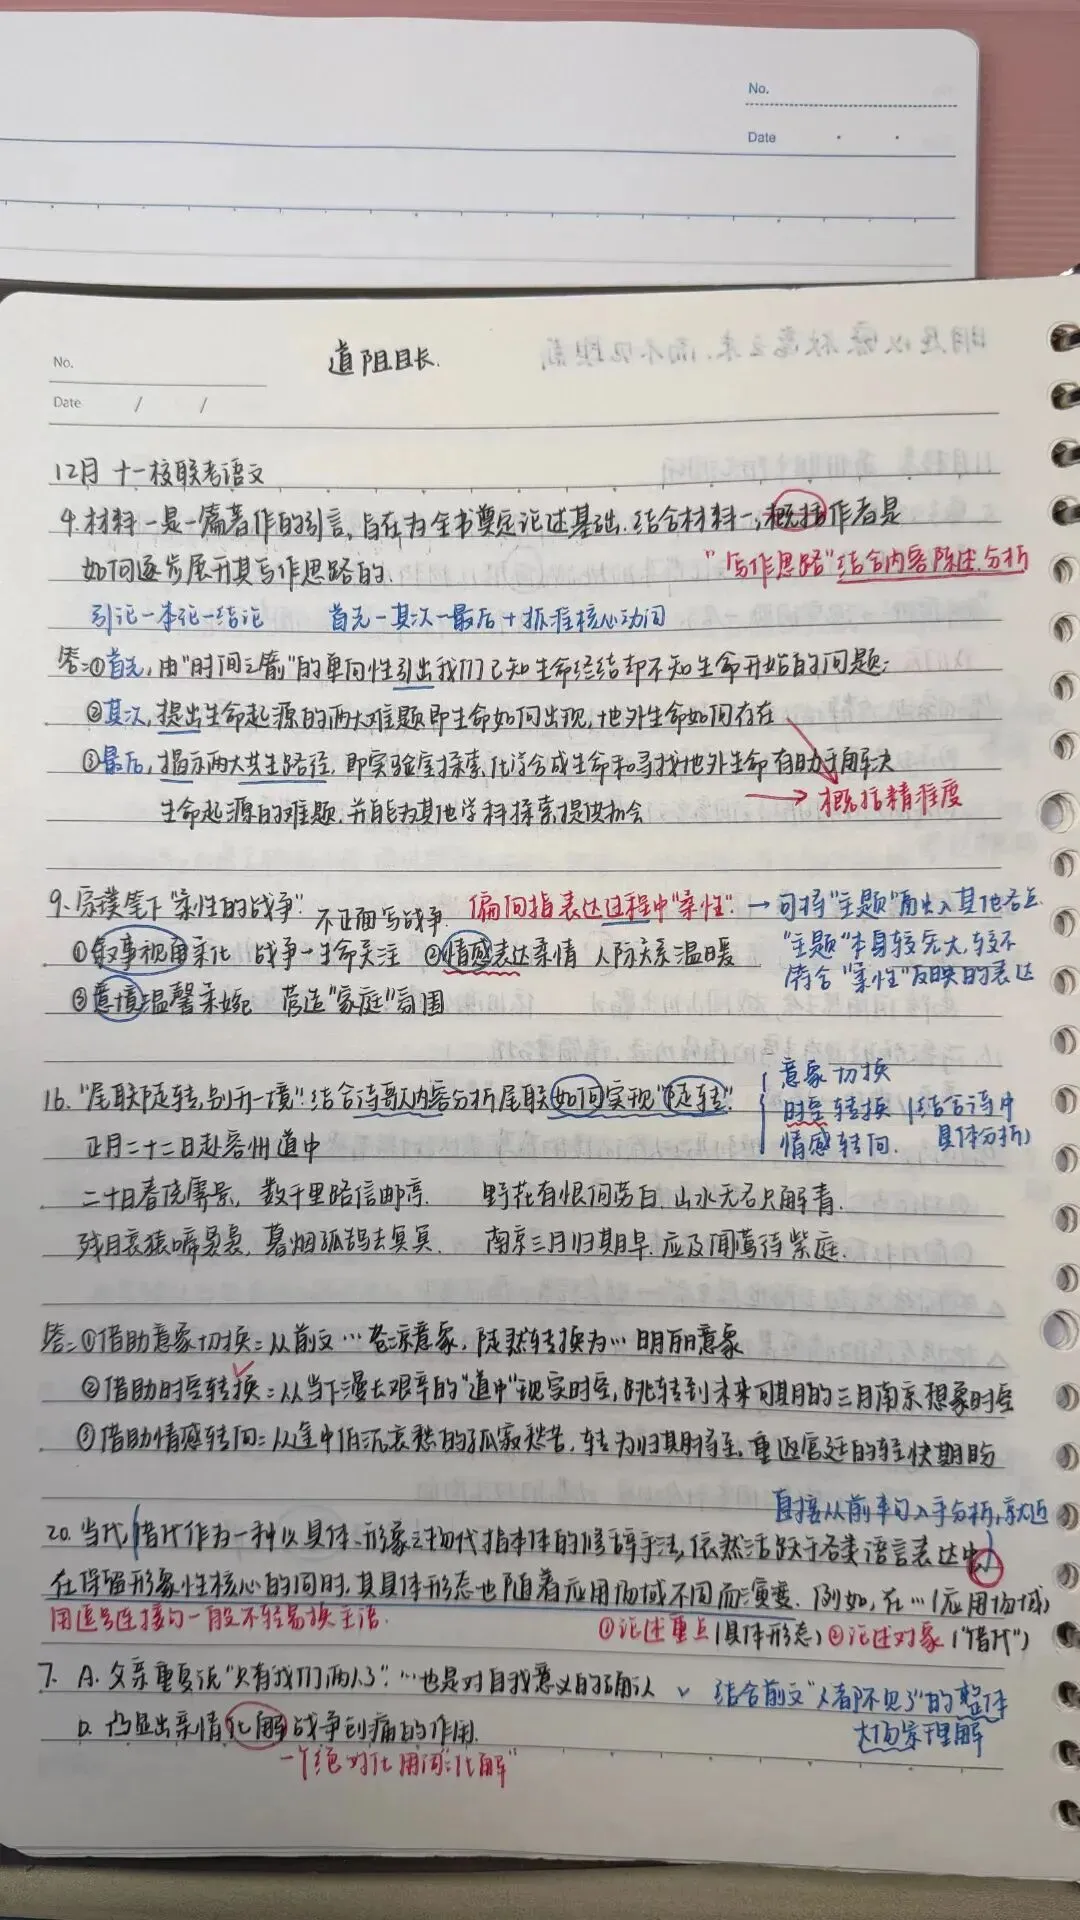 No.
Date
No.
道阻且长.
Date / /
12月 十一校联考语文
4.材料一是一篇著作的引言,旨在为全书奠定论述基础.结合材料一,概括作者是
如何逐步展开其写作思路的.
"写作思路"结合内容陈述.分析
引论一本论一结论 首先一其次一最后+抓准核心动词
答:①首先,由"时间之箭"的单向性引出我们已知生命终结却不知生命开始的问题;
②其次,提出生命起源的两大难题即生命如何出现,地外生命如何存在
③最后,揭示两大共生路径,即实验室探索化学合成生命和寻找地外生命有助于解决
→概括精准度
生命起源的难题.并且能为其他学科探索提供机会
9.宗璞笔下"柔性的战争" 不正面写战争 偏向指表达过程中"柔性".→可将"主题"融入其他各点
①叙事视角柔化 战争一生命关注 ②情感表达柔情 人际关系温暖
"主题"本身较宏大,较不
符合"柔性"反映的表达
③意境温馨柔婉 营造"家庭"氛围
16."尾联陡转,别开一境".结合诗歌内容分析尾联如何实现"陡转".
意象切换
时空转换(结合诗中
情感转向. 具体分析)
正月二十二日赴容州道中
二十日春信霁景,数千里路信邮亭. 野花有恨何劳白.山水无名只解青.
残月哀猿啼袅袅,暮烟孤鸹去冥冥. 南京三月归期早.应及闻莺待紫庭.
答:①借助意象切换:从前文…苍凉意象,陡然转换为…明丽意象
②借助时空转换:从当下漫长艰辛的"道中"现实时空,跳转到未来可期的三月南京想象时空
③借助情感转向:从途中低沉哀愁的孤寂愁苦,转为归期将至.重返宫廷的轻快期盼
直接从前半句入手分析,就近
20.当代,借代作为一种以具体、形象之物代指本体的修辞手法,依然活跃于各类语言表达中,
在保留形象性核心的同时,其具体形态也随着应用场域不同而演变.例如,在…(应用场域)
用逗号连接句一般不轻易换主语. ①论述重点(具体形态)②论述对象("借代")
7. A.父亲重复说"只有我们两人了".…也是对自我意义的确认 √ 结合前文"人都不见了"的整体
大场景理解
D.凸显出亲情化解战争创痛的作用.
一个绝对化用词:"化解"